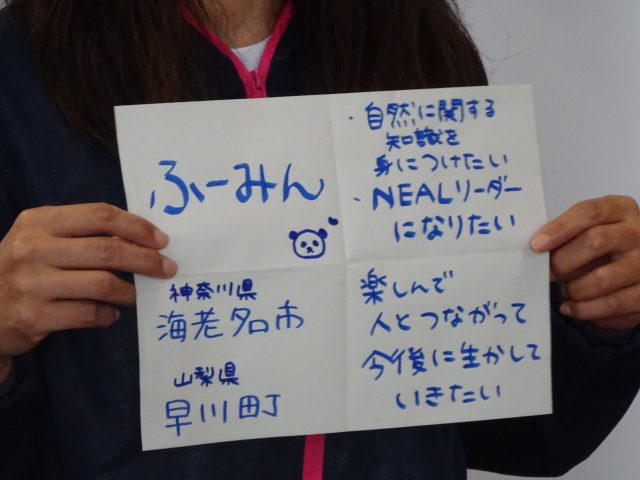 ふーみん
神奈川県
海老名市
山梨県
早川町
・自然に関する
知識を
身につけたい
・NEALリーダー
になりたい
楽しんで
人とつながって
今後に生かして
いきたい